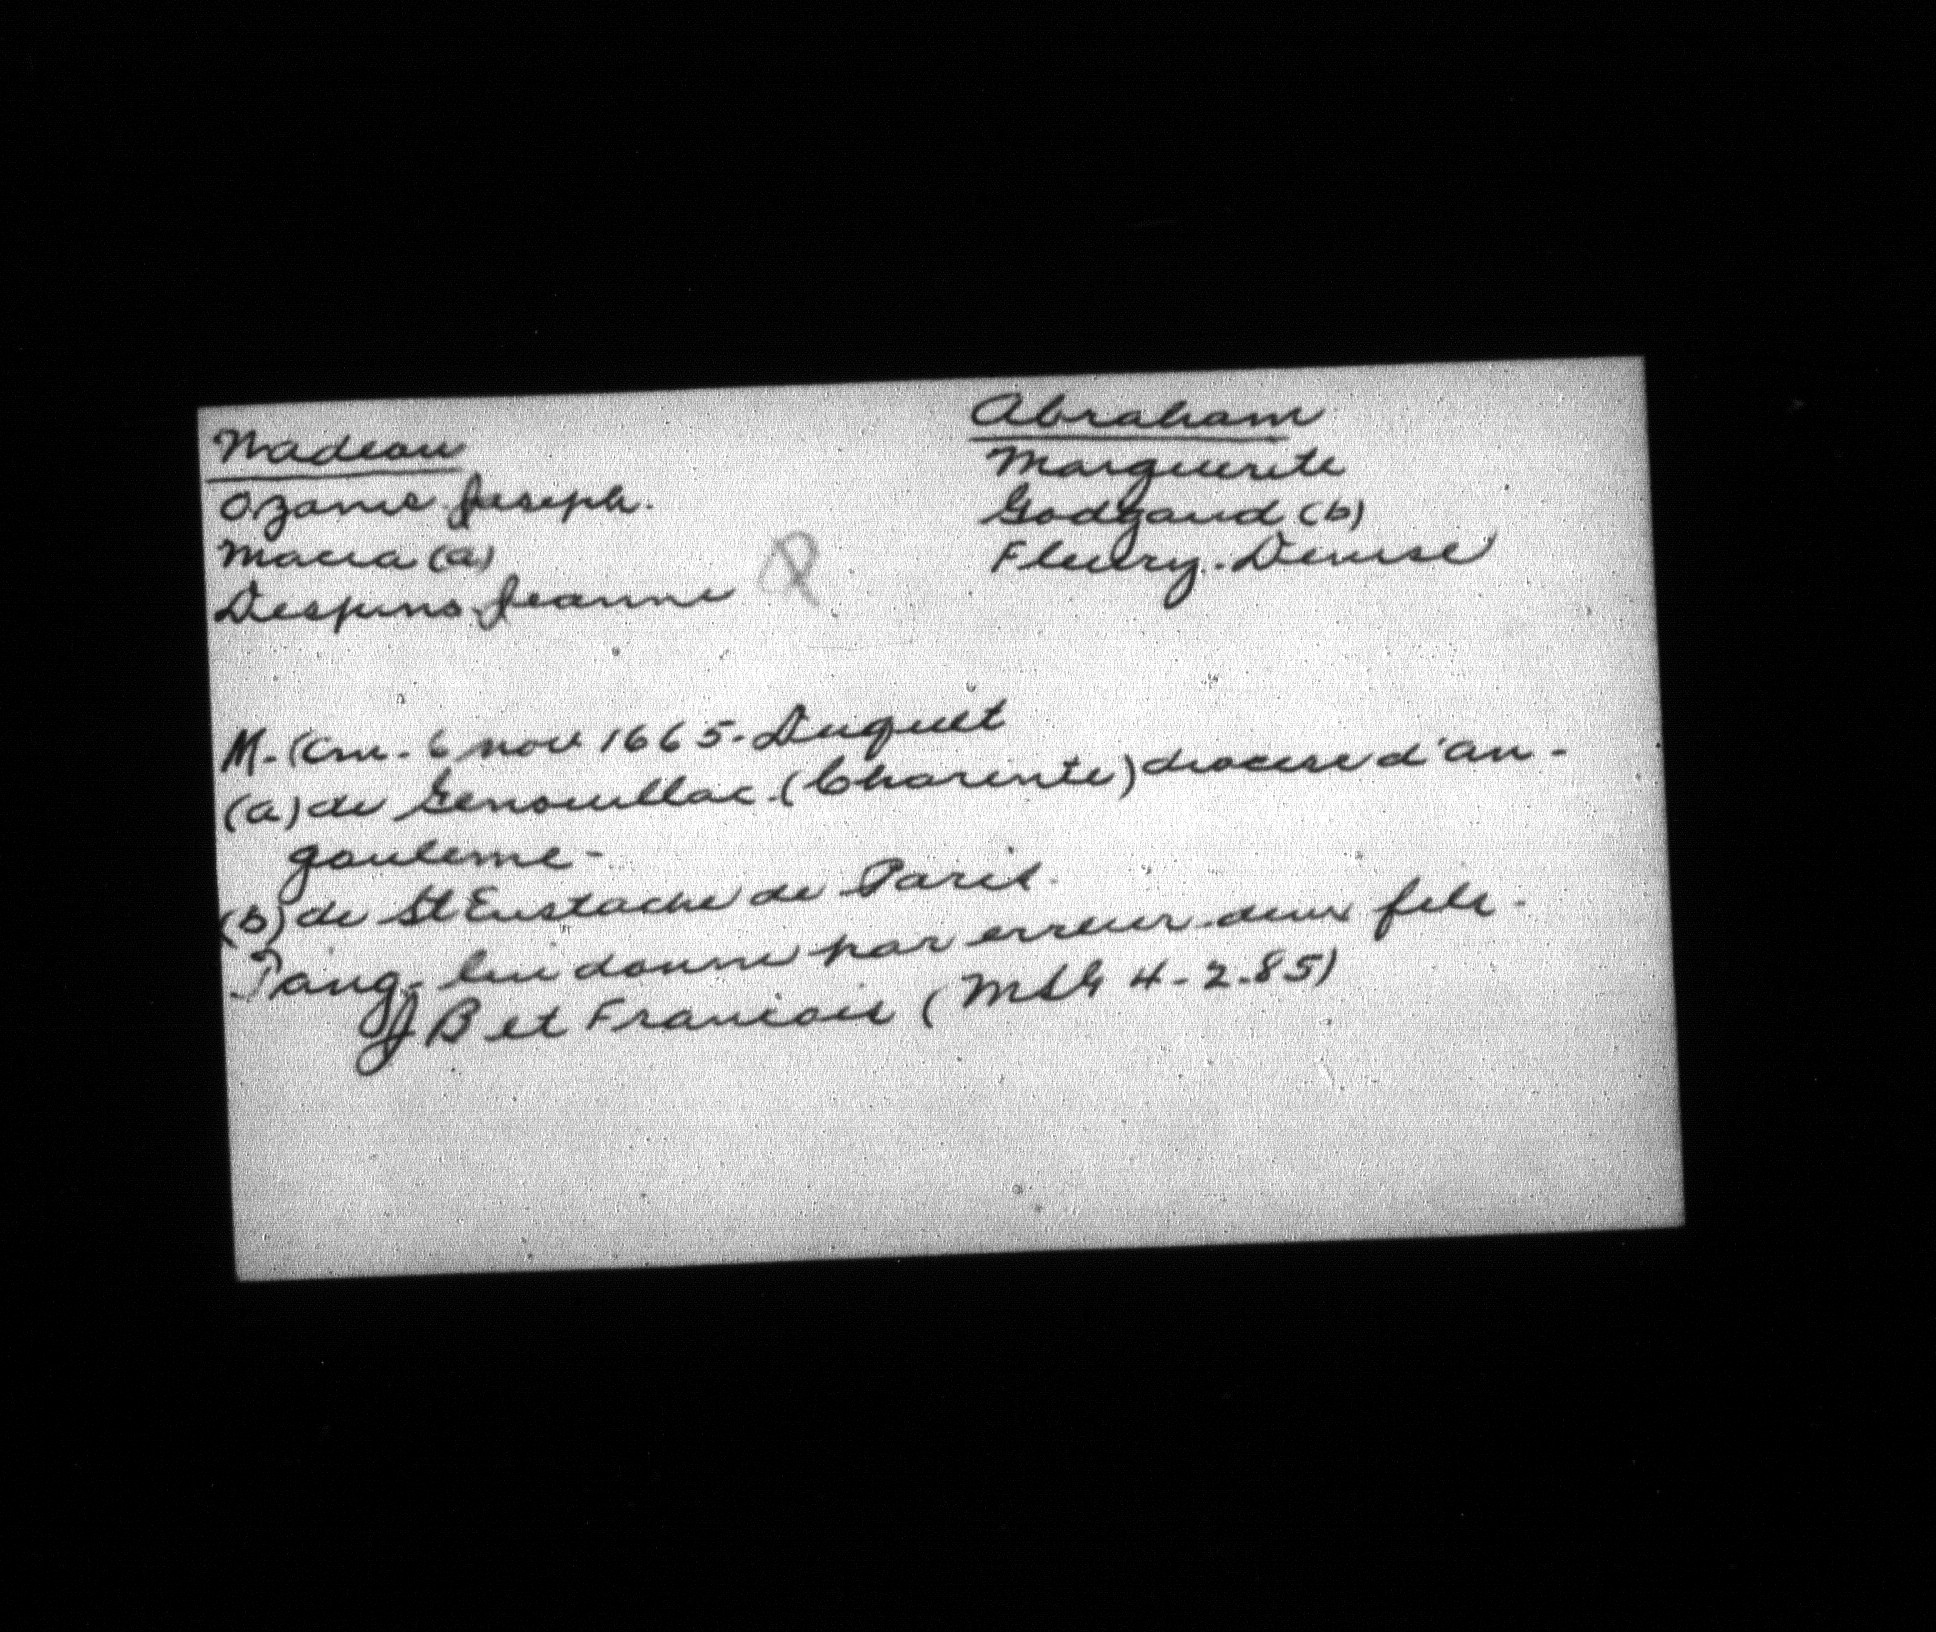 Nadeau
Ozanie Joseph.
Macia (a)
Despins Jeanne
Abraham
Marguerite
Godgaud (b)
Fleury. Denise
M. (Cm. 6 nov 1665. Duquet
(a) de Genouillac. (Charente) diocese d'an-
gouleme-
(b) de St Eustache de Paris.
Tang. lui donne par erreur deux fils.
JB et Francois (MSG 4-2-85)